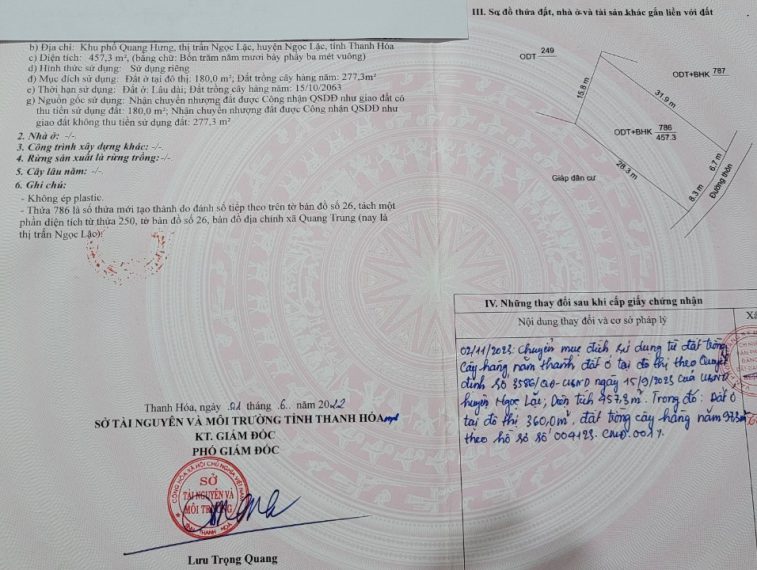 b) Địa chỉ: Khu phố Quang Hưng, thị trấn Ngọc Lặc, huyện Ngọc Lặc, tỉnh Thanh Hóa
c) Diện tích: 457,3 m², (bằng chữ: Bốn trăm năm mươi bảy phẩy ba mét vuông)
d) Hình thức sử dụng: Sử dụng riêng
đ) Mục đích sử dụng: Đất ở tại đô thị: 180,0 m²; Đất trồng cây hàng năm: 277,3m²
e) Thời hạn sử dụng: Đất ở: Lâu dài; Đất trồng cây hàng năm: 15/10/2063
g) Nguồn gốc sử dụng: Nhận chuyển nhượng đất được Công nhận QSDĐ như giao đất có
thu tiền sử dụng đất: 180,0 m²; Nhận chuyển nhượng đất được Công nhận QSDĐ như
giao đất không thu tiền sử dụng đất: 277,3 m²
2. Nhà ở: -/-
3. Công trình xây dựng khác: -/-
4. Rừng sản xuất là rừng trồng:-/-
5. Cây lâu năm: -/-
6. Ghi chú:
- Không ép plastic.
- Thửa 786 là số thửa mới tạo thành do đánh số tiếp theo trên tờ bản đồ số 26, tách một
phần diện tích từ thửa 250, tờ bản đồ số 26, bản đồ địa chính xã Quang Trung (nay là
thị trấn Ngọc Lặc).
Thanh Hóa, ngày 01 tháng 6 năm 2022
SỞ TÀI NGUYÊN VÀ MÔI TRƯỜNG TỈNH THANH HÓA
KT. GIÁM ĐỐC
PHÓ GIÁM ĐỐC
CỘNG HÒA XÃ HỘI CHỦ NGHĨA VIỆT NAM
SỞ
TÀI NGUYÊN VÀ
MÔI TRƯỜNG
TỈNH THANH HOÁ
Lưu Trọng Quang
III. Sơ đồ thửa đất, nhà ở và tài sản khác gắn liền với đất
ODT 249
ODT+BHK 787
15.8 m
31.9 m
ODT+BHK 786
457.3
28.3 m
6.7 m
8.3 m
Giáp dân cư
Đường thôn
IV. Những thay đổi sau khi cấp giấy chứng nhận
Nội dung thay đổi và cơ sở pháp lý
Xá
02/11/2023: Chuyển mục đích sử dụng từ đất trồng
cây hàng năm thành đất ở tại đô thị theo Quyết
định số 3586/QĐ-UBND ngày 15/9/2023 của UBND
huyện Ngọc Lặc, Diện tích 457,3m². Trong đó: Đất ở
tại đô thị 360,0m², đất trồng cây hàng năm 97,3m²
theo hồ sơ số 004123.CMĐ.001